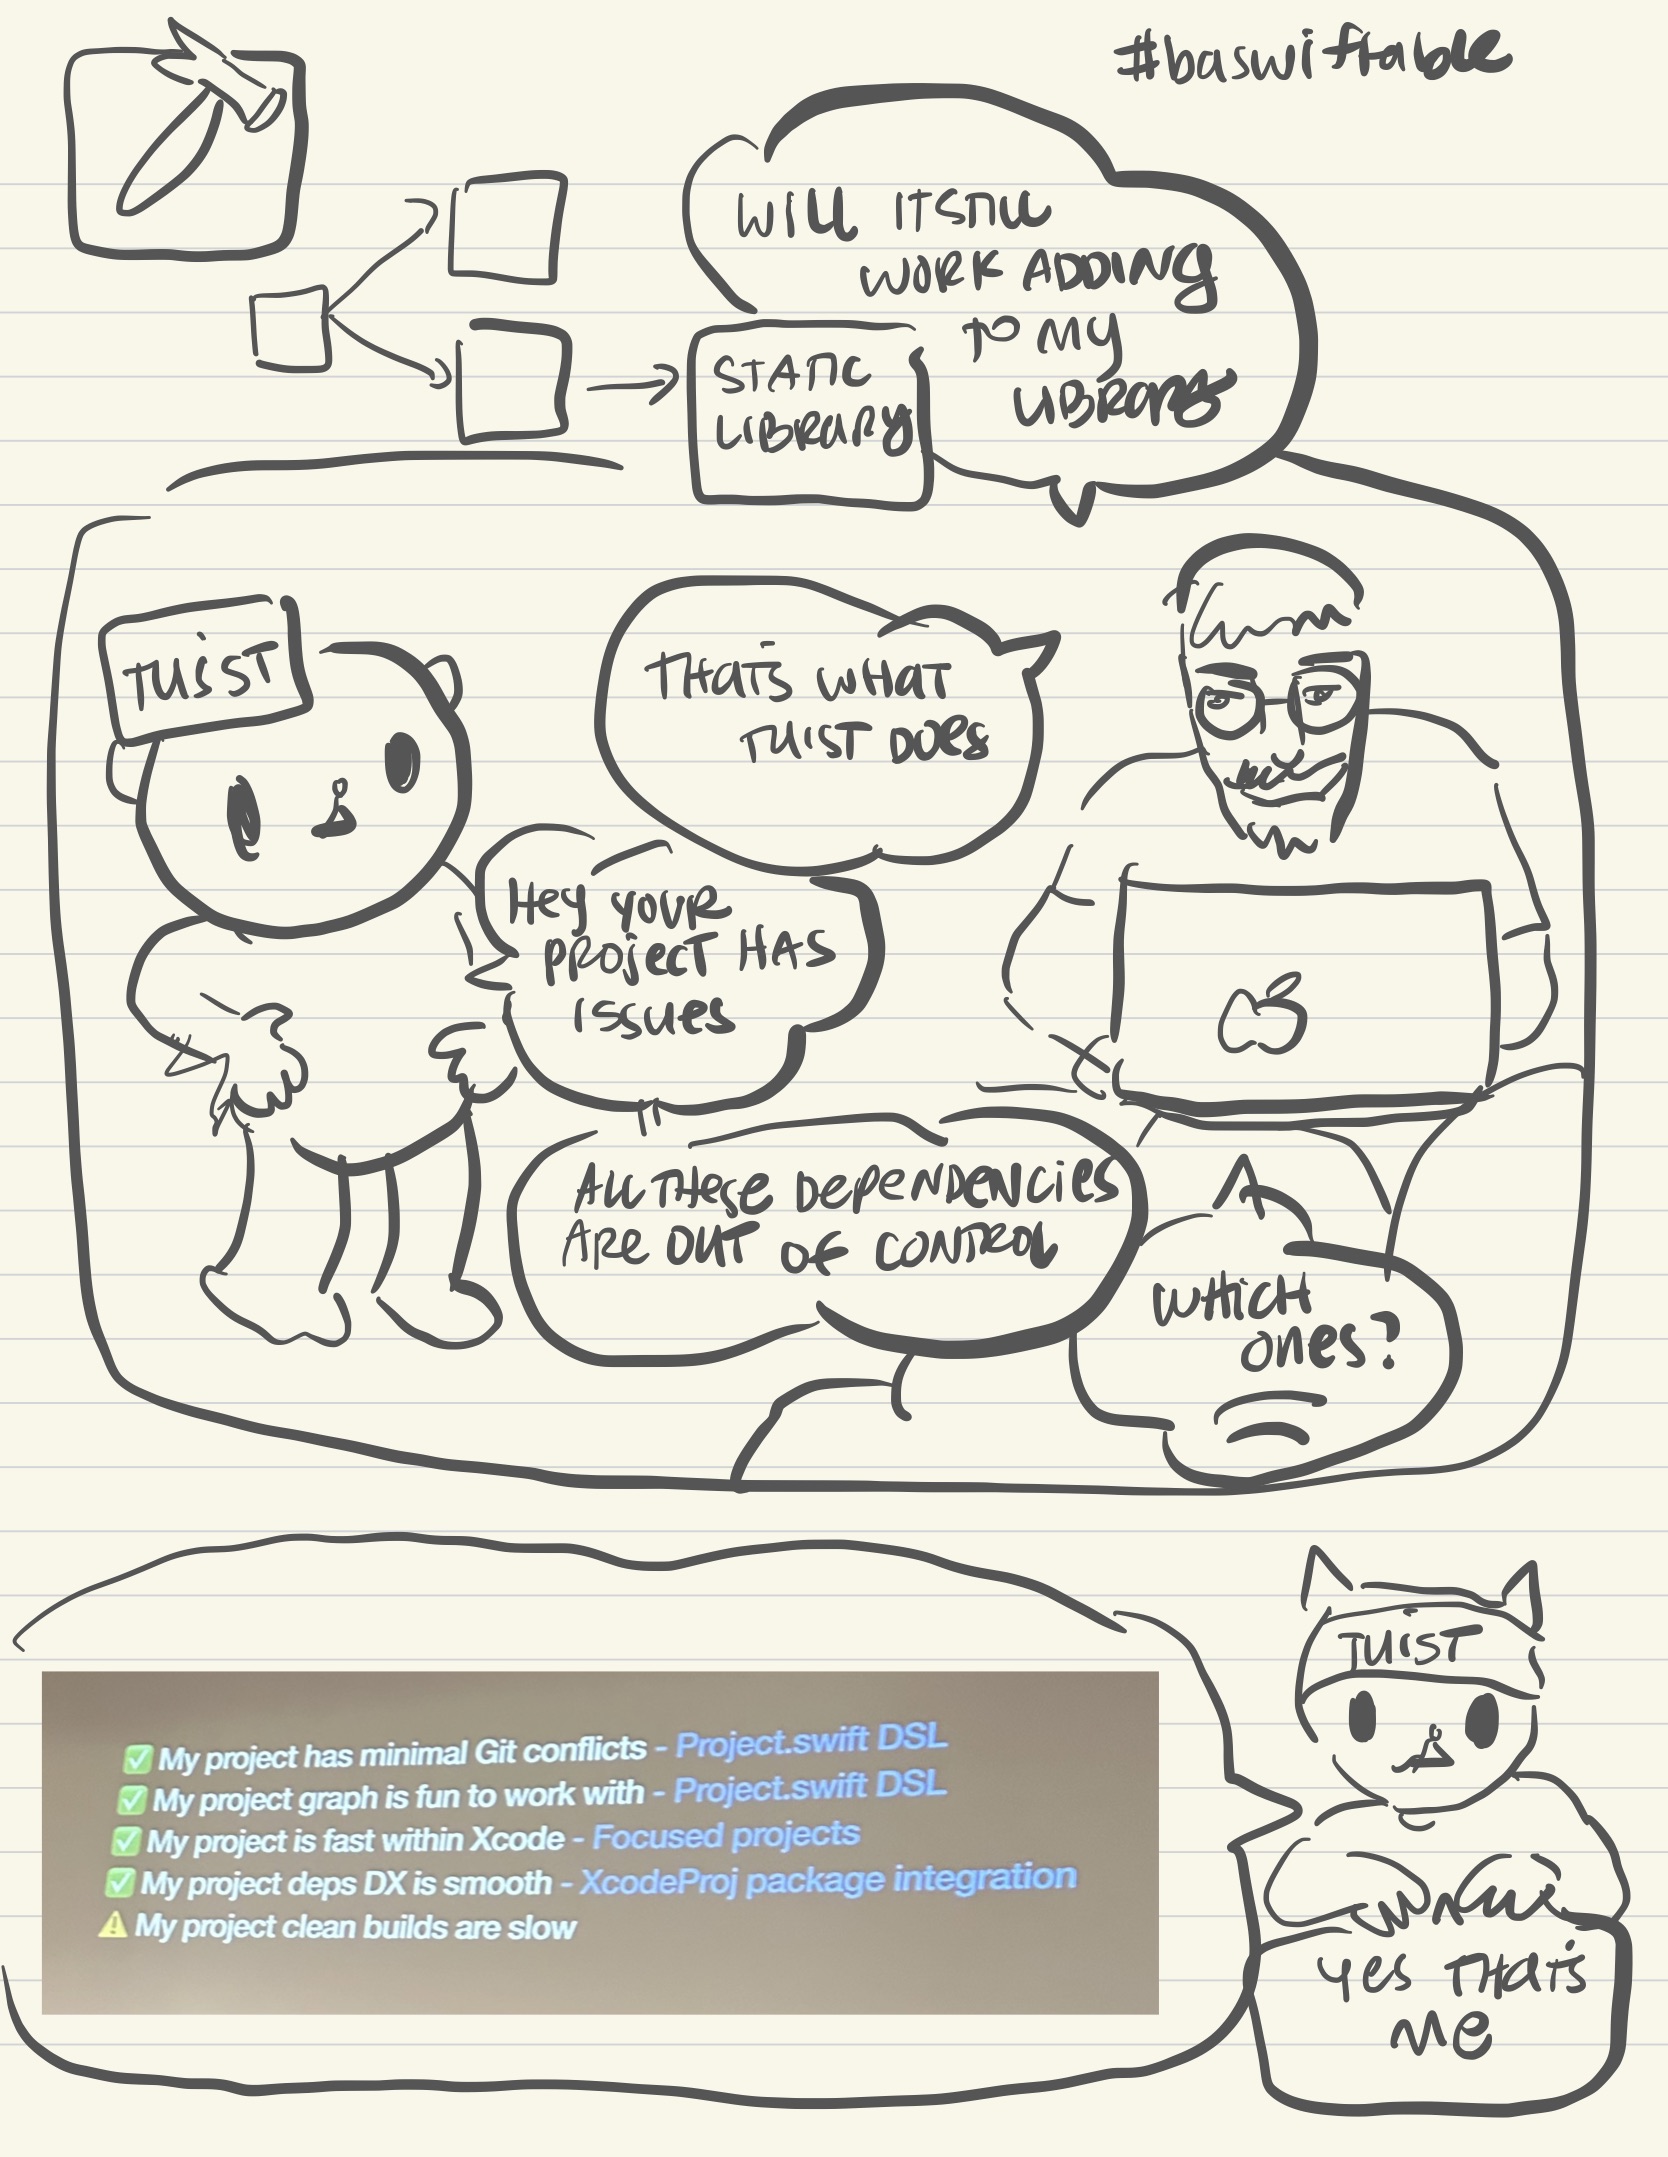 #baswiftable
WILL IT STILL
WORK ADDING
TO MY
LIBRARY
STATIC
LIBRARY
TUIST
THAT'S WHAT
TUIST DOES
Hey YOUR
PROJECT HAS
ISSUES
ALL THESE DEPENDENCIES
ARE OUT OF CONTROL
WHICH
ONES?
TUIST
✅ My project has minimal Git conflicts - Project.swift DSL
✅ My project graph is fun to work with - Project.swift DSL
✅ My project is fast within Xcode - Focused projects
✅ My project deps DX is smooth - XcodeProj package integration
⚠️ My project clean builds are slow
Yes THAT'S
Me